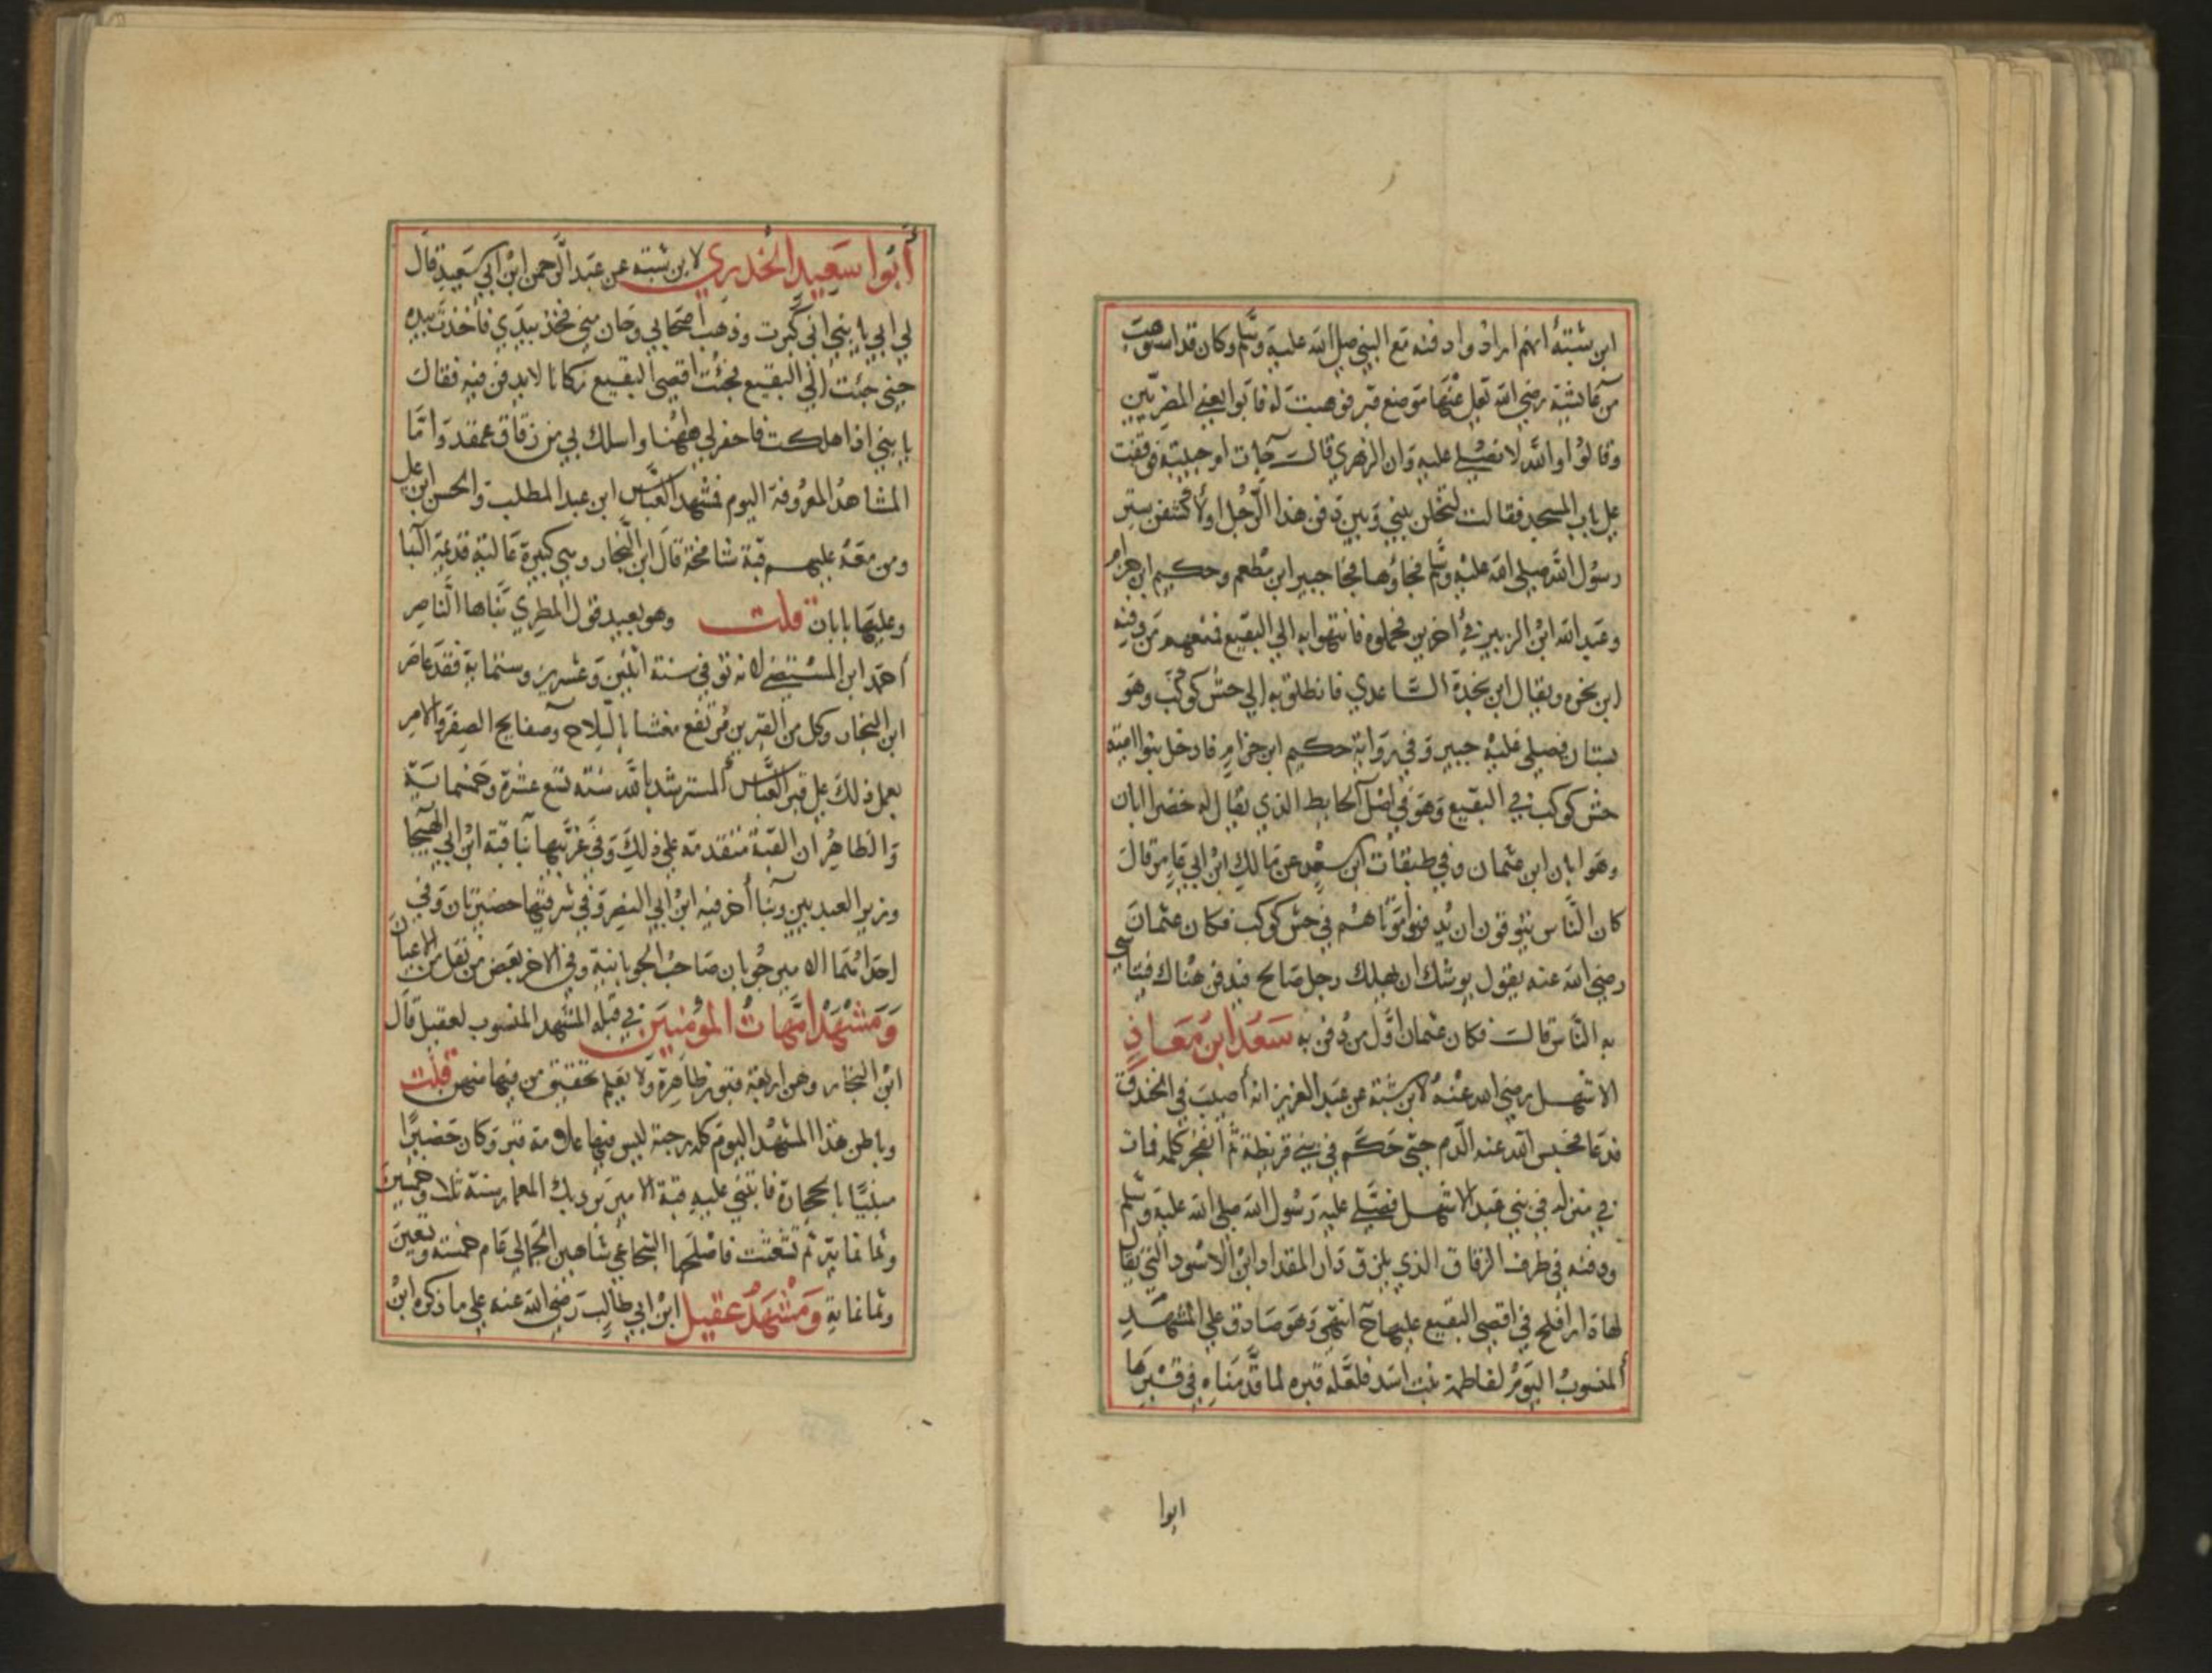 ابن شبة أنهم ارادوا دفنه مع النبي صلى الله عليه وسلم وكان قد استوهب
من عائشة رضي الله تعلى عنها موضع قبر فوهبت له فابوا يعني المضريين
وقالوا والله لا نصلي عليه وان الزهري قالت جات ام حبيبة فوقفت
على باب المسجد فقالت لتخلن بيني وبين دفن هذا الرجل اولا كشفن ستر
رسول الله صلى الله عليه وسلم فجاؤها فجا جبير ابن مطعم وحكيم ابن حزام
وعبد الله ابن الزبير في أخرين فحملوه فانتهوا به الي البقيع فمنعهم من دفنه
ابن بخره ويقال ابن بجدة الساعدي فانطلق به الي حش كوكب وهو
بستان فصلى عليه جبير وفي رواية حكيم ابن حزام فادخل بنوا امية
حش كوكب في البقيع وهو في اصل الحايط الذي يقال له خضرا ابان
وهو ابان ابن عثمان وفي طبقات ابن سعد عن مالك ابن ابي عامر قال
كان الناس يتوقون ان يدفنوا موتاهم في حش كوكب فكان عثمان
رضي الله عنه يقول يوشك ان يهلك رجل صالح فيدفن هناك فيتاسى
به الناس قالت فكان عثمان اول من دفن به سعد ابن معاذ
الاشهل رضي الله عنه لابن شبة عن عبد العزيز انه أصيب في الخندق
فدعا فحبس الله عنه الدم حتى حكم في بني قريظة ثم انفجر كلمه فمات
في منزله في بني عبد الاشهل فصلى عليه رسول الله صلى الله عليه وسلم
ودفنه في طرف الزقاق الذي بلزق دار المقداد ابن الاسود التي يقال
لها دار افلح في اقصى البقيع عليها انتهى وهو صادق علي المشهد
المنسوب اليوم لفاطمة بنت اسد فلعله قبره لما قدمناه في قبرها
ابوا
أبوا سعيد الخدري لابن شبة عن عبد الرحمن ابن ابي سعيد قال
لي ابي يا بني اني كبرت وذهب اصحابي وحان مني فخذ بيدي فاخذت بيده
حتى جئت الي البقيع فجئت اقصى البقيع مكانا لا يدفن فيه فقال
يا بني اذا هلكت فاحفر لي ههنا واسلك بي من زقاق عمقد واما
المشاهد المعروفة اليوم فمشهد العباس ابن عبد المطلب والحسن ابن على
ومن معه عليهم قبة شامخة قال ابن النجار وهي كبيرة عالية قديمة البنا
وعليها بابان قلت وهو بعيد قول المطري بناها الناصر
أحمد ابن المستضي لانه توفي سنة اثنين وعشرين وستماية فقد عاصر
ابن النجار وكل من القبرين مرتفع مغشا بالبلاح وصفايح الصفر والامر
بعمل ذلك على قبر العباس المسترشد بالله سنة تسع عشرة وخمسماية
والظاهر ان القبة متقدمة على ذلك وفي غربيها بنا قبة ابن ابي الهيجا
وزير العبديين وبنا أخر فيه ابن ابي النصر وفي شرقيها حضيرتان وفي
احداثهما الامير جوبان صاحب الجوبانية وفي الاخر بعض من نقل من الاعيان
ومشهد امهات المؤمنين في قبلة المشهد المنسوب لعقيل قال
ابن النجار وهن اربعة قبور ظاهرة ولا يعلم تحقيق من فيها منهن قلت
وباطن هذا المشهد اليوم كله رحبة ليس فيها علامة قبر وكان حضيرا
مبنيا بالحجارة فابتني عليه قبة الامير برديك المعمار سنة ثلاث وخمسين
وثمانماية ثم تشعثت فاصلحها الشجاعي شاهين الجمالي عام خمسة وتسعين
وثمانماية ومشهد عقيل ابن ابي طالب رضي الله عنه علي ما ذكره ابن